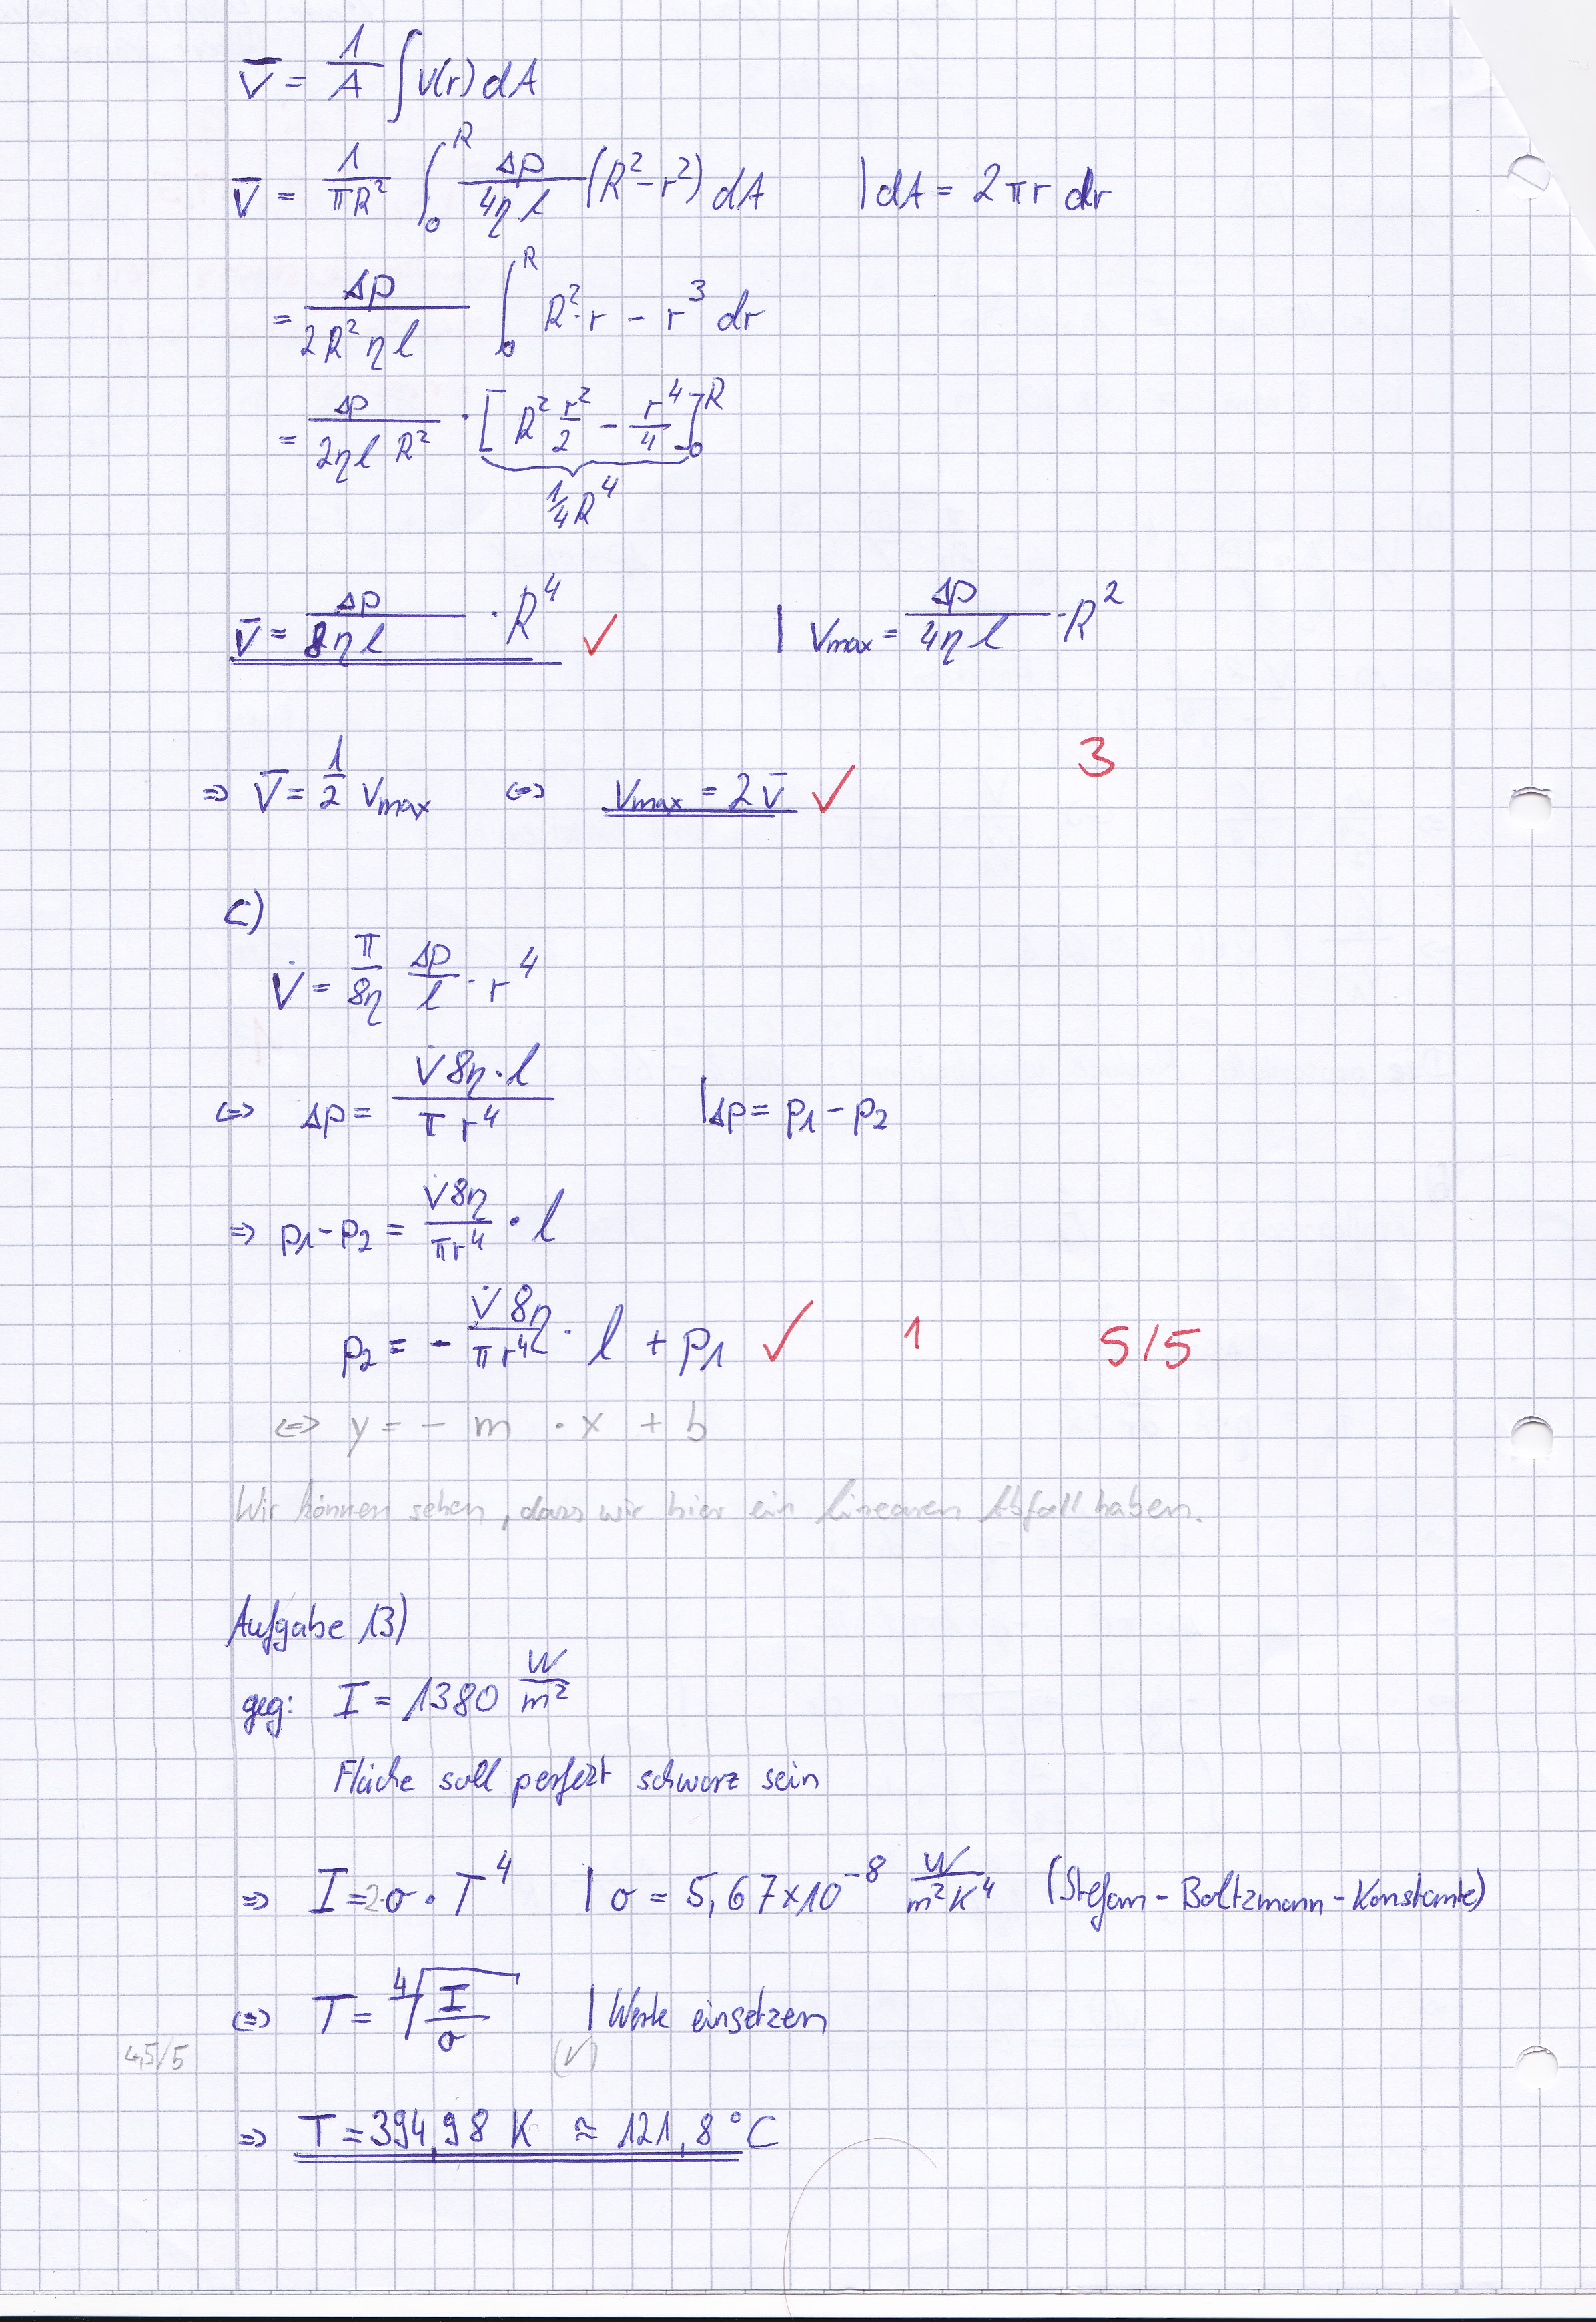 v̄ = 1/A ∫ v(r) dA
v̄ = 1/(πR²) ∫₀ᴿ Δp/(4ηl) (R² - r²) dA | dA = 2πr dr
= Δp/(2R²ηl) ∫₀ᴿ R²·r - r³ dr
= Δp/(2ηl R²) · [R² r²/2 - r⁴/4]₀ᴿ
1/4 R⁴
v̄ = Δp/(8ηl) · R⁴ ✓ | vmax = Δp/(4ηl) · R²
3
⇒ v̄ = 1/2 vmax ⇔ vmax = 2v̄ ✓
c)
V̇ = π/(8η) Δp/l · r⁴
⇔ Δp = V̇8η·l/(πr⁴) | Δp = p₁ - p₂
⇒ p₁ - p₂ = V̇8η/(πr⁴) · l
p₂ = - V̇8η/(πr⁴) · l + p₁ ✓ 1 5/5
⇔ y = - m · x + b
Wir können sehen, dass wir hier ein linearen Abfall haben.
Aufgabe 13)
geg: I = 1380 W/m²
Fläche soll perfekt schwarz sein
⇒ I = 2·σ·T⁴ | σ = 5,67×10⁻⁸ W/(m²K⁴) (Stefan-Boltzmann-Konstante)
⇔ T = ⁴√(I/σ) | Werte einsetzen
4,5/5 (✓)
⇒ T = 394,98 K ≈ 121,8 °C